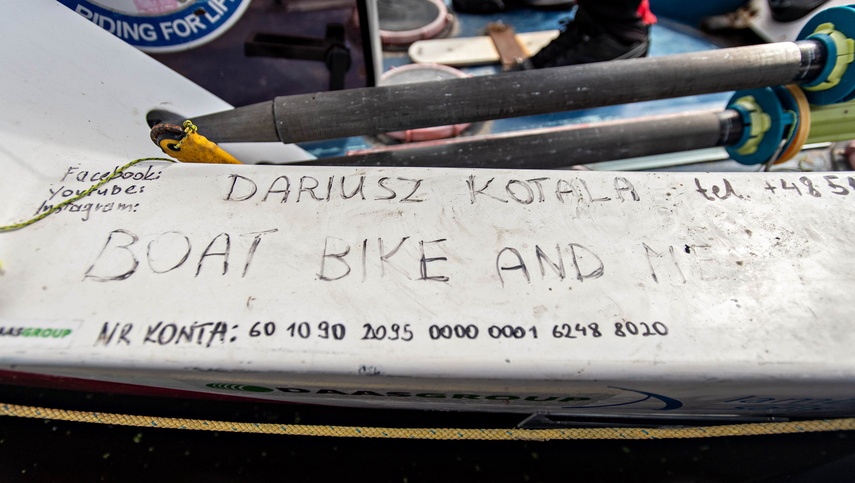 RIDING FOR LIFE
Facebook:
Youtube:
Instagram:
DARIUSZ KOTALA
tel. +48 5
BOAT BIKE AND ME
NR KONTA: 60 1090 2095 0000 0001 6248 8020
DAASGROUP
DAASGROUP